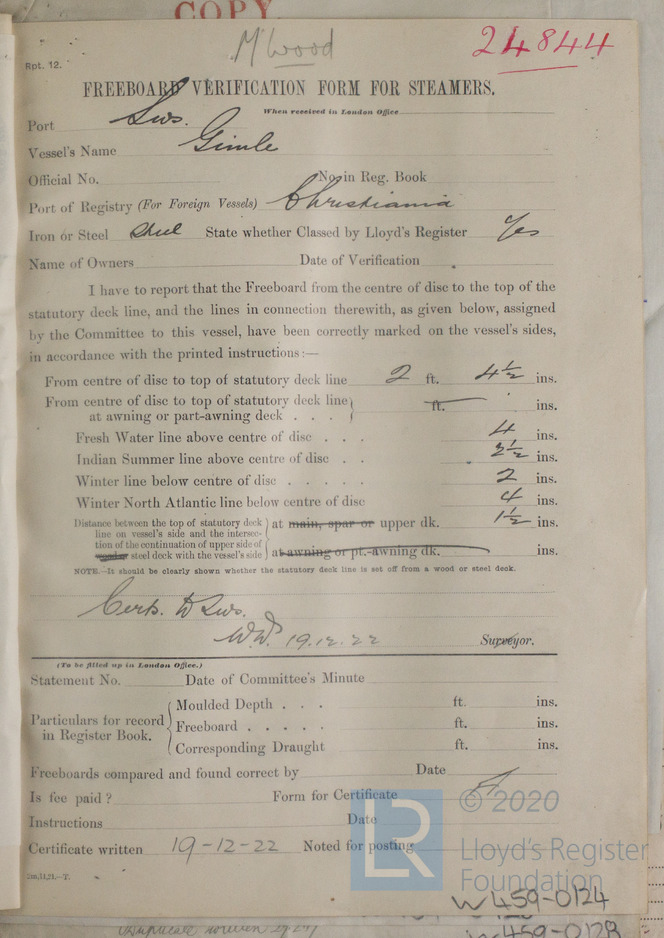 COPY
M'Wood
24844
Rpt. 12.
FREEBOARD VERIFICATION FORM FOR STEAMERS.
When received in London Office
Port Sws.
Vessel's Name Gimle
Official No. No. in Reg. Book
Port of Registry (For Foreign Vessels) Christiania
Iron or Steel Steel State whether Classed by Lloyd's Register Yes
Name of Owners Date of Verification
I have to report that the Freeboard from the centre of disc to the top of the
statutory deck line, and the lines in connection therewith, as given below, assigned
by the Committee to this vessel, have been correctly marked on the vessel's sides,
in accordance with the printed instructions:—
From centre of disc to top of statutory deck line 2 ft. 4½ ins.
From centre of disc to top of statutory deck line
at awning or part-awning deck . . . ft. ins.
Fresh Water line above centre of disc . . . 4 ins.
Indian Summer line above centre of disc . . 2½ ins.
Winter line below centre of disc . . . . . 2 ins.
Winter North Atlantic line below centre of disc 4 ins.
Distance between the top of statutory deck
line on vessel's side and the intersec-
tion of the continuation of upper side of
wood or steel deck with the vessel's side
at main, spar or upper dk. 1½ ins.
at awning or pt.-awning dk. ins.
NOTE.—It should be clearly shown whether the statutory deck line is set off from a wood or steel deck.
Certs. to Sws.
WW. 19.12.22 Surveyor.
(To be filled up in London Office.)
Statement No. Date of Committee's Minute
Particulars for record
in Register Book.
Moulded Depth . . . ft. ins.
Freeboard . . . . . ft. ins.
Corresponding Draught ft. ins.
Freeboards compared and found correct by Date
Is fee paid ? Form for Certificate
Instructions Date
Certificate written 19-12-22 Noted for posting
2m,11,21.—T.
LR
© 2020
Lloyd's Register
Foundation
W459-0124
W459-0128
Duplicate written